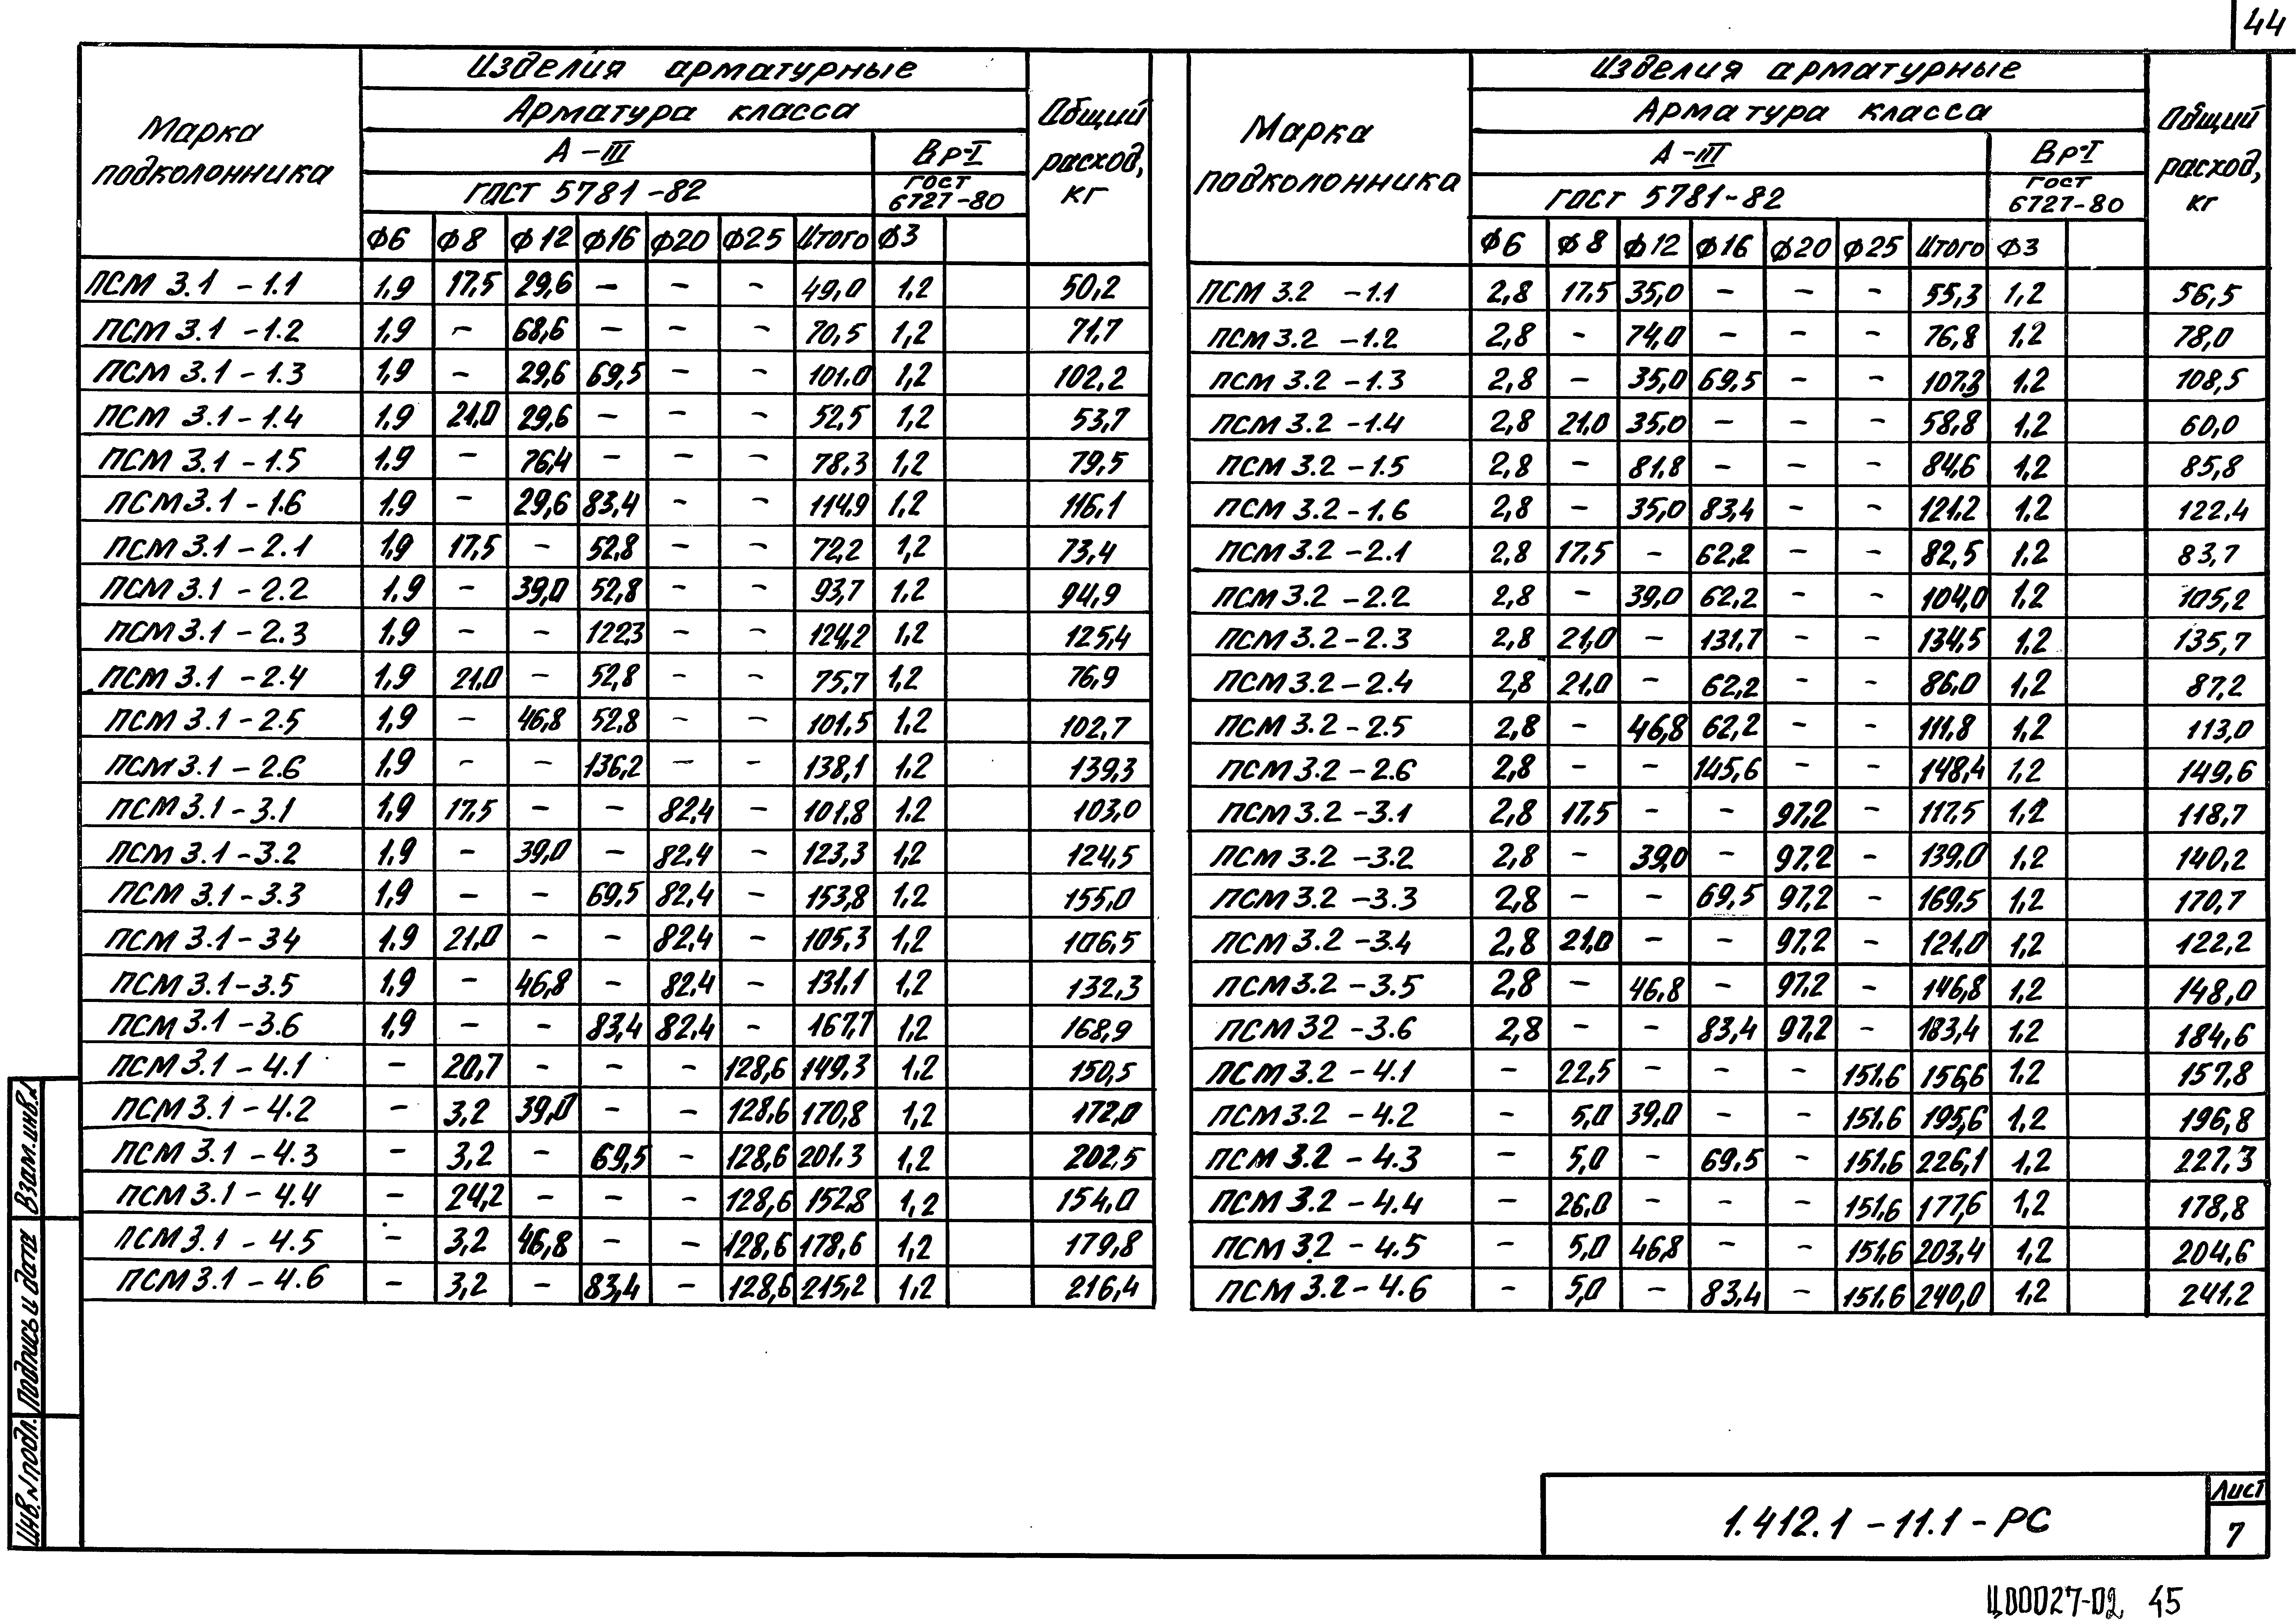 44
Изделия арматурные
Арматура класса
Марка подколонника
А-III
Вр-I
Общий расход, кг
ГОСТ 5781-82
ГОСТ 6727-80
ф6 ф8 ф12 ф16 ф20 ф25 Итого ф3
ПСМ 3.1 - 1.1 1,9 17,5 29,6 - - - 49,0 1,2 50,2
ПСМ 3.1 - 1.2 1,9 - 68,6 - - - 70,5 1,2 71,7
ПСМ 3.1 - 1.3 1,9 - 29,6 69,5 - - 101,0 1,2 102,2
ПСМ 3.1 - 1.4 1,9 21,0 29,6 - - - 52,5 1,2 53,7
ПСМ 3.1 - 1.5 1,9 - 76,4 - - - 78,3 1,2 79,5
ПСМ 3.1 - 1.6 1,9 - 29,6 83,4 - - 114,9 1,2 116,1
ПСМ 3.1 - 2.1 1,9 17,5 - 52,8 - - 72,2 1,2 73,4
ПСМ 3.1 - 2.2 1,9 - 39,0 52,8 - - 93,7 1,2 94,9
ПСМ 3.1 - 2.3 1,9 - - 122,3 - - 124,2 1,2 125,4
ПСМ 3.1 - 2.4 1,9 21,0 - 52,8 - - 75,7 1,2 76,9
ПСМ 3.1 - 2.5 1,9 - 46,8 52,8 - - 101,5 1,2 102,7
ПСМ 3.1 - 2.6 1,9 - - 136,2 - - 138,1 1,2 139,3
ПСМ 3.1 - 3.1 1,9 17,5 - - 82,4 - 101,8 1,2 103,0
ПСМ 3.1 - 3.2 1,9 - 39,0 - 82,4 - 123,3 1,2 124,5
ПСМ 3.1 - 3.3 1,9 - - 69,5 82,4 - 153,8 1,2 155,0
ПСМ 3.1 - 34 1,9 21,0 - - 82,4 - 105,3 1,2 106,5
ПСМ 3.1 - 3.5 1,9 - 46,8 - 82,4 - 131,1 1,2 132,3
ПСМ 3.1 - 3.6 1,9 - - 83,4 82,4 - 167,7 1,2 168,9
ПСМ 3.1 - 4.1 - 20,7 - - - 128,6 149,3 1,2 150,5
ПСМ 3.1 - 4.2 - 3,2 39,0 - - 128,6 170,8 1,2 172,0
ПСМ 3.1 - 4.3 - 3,2 - 69,5 - 128,6 201,3 1,2 202,5
ПСМ 3.1 - 4.4 - 24,2 - - - 128,6 152,8 1,2 154,0
ПСМ 3.1 - 4.5 - 3,2 46,8 - - 128,6 178,6 1,2 179,8
ПСМ 3.1 - 4.6 - 3,2 - 83,4 - 128,6 215,2 1,2 216,4
Изделия арматурные
Арматура класса
Марка подколонника
А-III
Вр-I
Общий расход, кг
ГОСТ 5781-82
ГОСТ 6727-80
ф6 ф8 ф12 ф16 ф20 ф25 Итого ф3
ПСМ 3.2 - 1.1 2,8 17,5 35,0 - - - 55,3 1,2 56,5
ПСМ 3.2 - 1.2 2,8 - 74,0 - - - 76,8 1,2 78,0
ПСМ 3.2 - 1.3 2,8 - 35,0 69,5 - - 107,3 1,2 108,5
ПСМ 3.2 - 1.4 2,8 21,0 35,0 - - - 58,8 1,2 60,0
ПСМ 3.2 - 1.5 2,8 - 81,8 - - - 84,6 1,2 85,8
ПСМ 3.2 - 1.6 2,8 - 35,0 83,4 - - 121,2 1,2 122,4
ПСМ 3.2 - 2.1 2,8 17,5 - 62,2 - - 82,5 1,2 83,7
ПСМ 3.2 - 2.2 2,8 - 39,0 62,2 - - 104,0 1,2 105,2
ПСМ 3.2 - 2.3 2,8 21,0 - 131,7 - - 134,5 1,2 135,7
ПСМ 3.2 - 2.4 2,8 21,0 - 62,2 - - 86,0 1,2 87,2
ПСМ 3.2 - 2.5 2,8 - 46,8 62,2 - - 111,8 1,2 113,0
ПСМ 3.2 - 2.6 2,8 - - 145,6 - - 148,4 1,2 149,6
ПСМ 3.2 - 3.1 2,8 17,5 - - 97,2 - 117,5 1,2 118,7
ПСМ 3.2 - 3.2 2,8 - 39,0 - 97,2 - 139,0 1,2 140,2
ПСМ 3.2 - 3.3 2,8 - - 69,5 97,2 - 169,5 1,2 170,7
ПСМ 3.2 - 3.4 2,8 21,0 - - 97,2 - 121,0 1,2 122,2
ПСМ 3.2 - 3.5 2,8 - 46,8 - 97,2 - 146,8 1,2 148,0
ПСМ 32 - 3.6 2,8 - - 83,4 97,2 - 183,4 1,2 184,6
ПСМ 3.2 - 4.1 - 22,5 - - - 151,6 156,6 1,2 157,8
ПСМ 3.2 - 4.2 - 5,0 39,0 - - 151,6 195,6 1,2 196,8
ПСМ 3.2 - 4.3 - 5,0 - 69,5 - 151,6 226,1 1,2 227,3
ПСМ 3.2 - 4.4 - 26,0 - - - 151,6 177,6 1,2 178,8
ПСМ 32 - 4.5 - 5,0 46,8 - - 151,6 203,4 1,2 204,6
ПСМ 3.2 - 4.6 - 5,0 - 83,4 - 151,6 240,0 1,2 241,2
Взам.инв.№
Подпись и дата
Инв.№ подл.
1.412.1 - 11.1 - РС
Лист
7
Ц00027-02 45